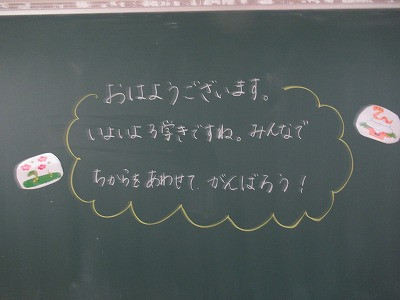 おはようございます。
いよいよ3学きですね。みんなで
ちからをあわせて がんばろう!